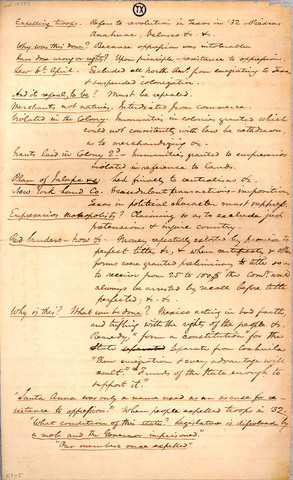 TX
Expelling troops. Refers to revolution in Texas in '32 - Piedras
Anahuac, Velasco &c &c.
Why was this done? Because oppression was intolerable
Was done wrong or right? Upon principle - resistance to oppression.
Law 6th April. Excluded all north Am's from emigrating to Texas
& suspended colonization.
And it repeal, to be? Must be repealed.
Merchants not natives. Interdicted from commerce.
Violated in the Colony. Immunities in colonies granted which
could not consistently with law be withdrawn,
as to merchandizing &c.
Grants laid in Colony 2? - Immunities granted to empresarios
violated in reference to lands.
Plan of Jalapa &c. Led finally to centralism &c
New York Land Co. Fraudulent transactions - imposition
Texas in political character must suppress.
Empresarios Monopolists? Claiming so as to exclude, just
pretensions & injure country.
and always be arrested by recall before title
perfected, &c. &c.
Why is this? What can be done? Mexico acting in bad faith,
and trifling with the rights of the people &c.
Remedy, "form a constitution for the
State separate from Coahuila
"then emigration & every advantage will
result." "Friends of the State enough to
support it."
"Santa Anna was only a name used as an excuse for re-
sistance to oppression." When people expelled troops in '32.
"What condition of this State? Legislature is dissolved by
a mob and the Governor imprisoned."
"Our members once expelled"